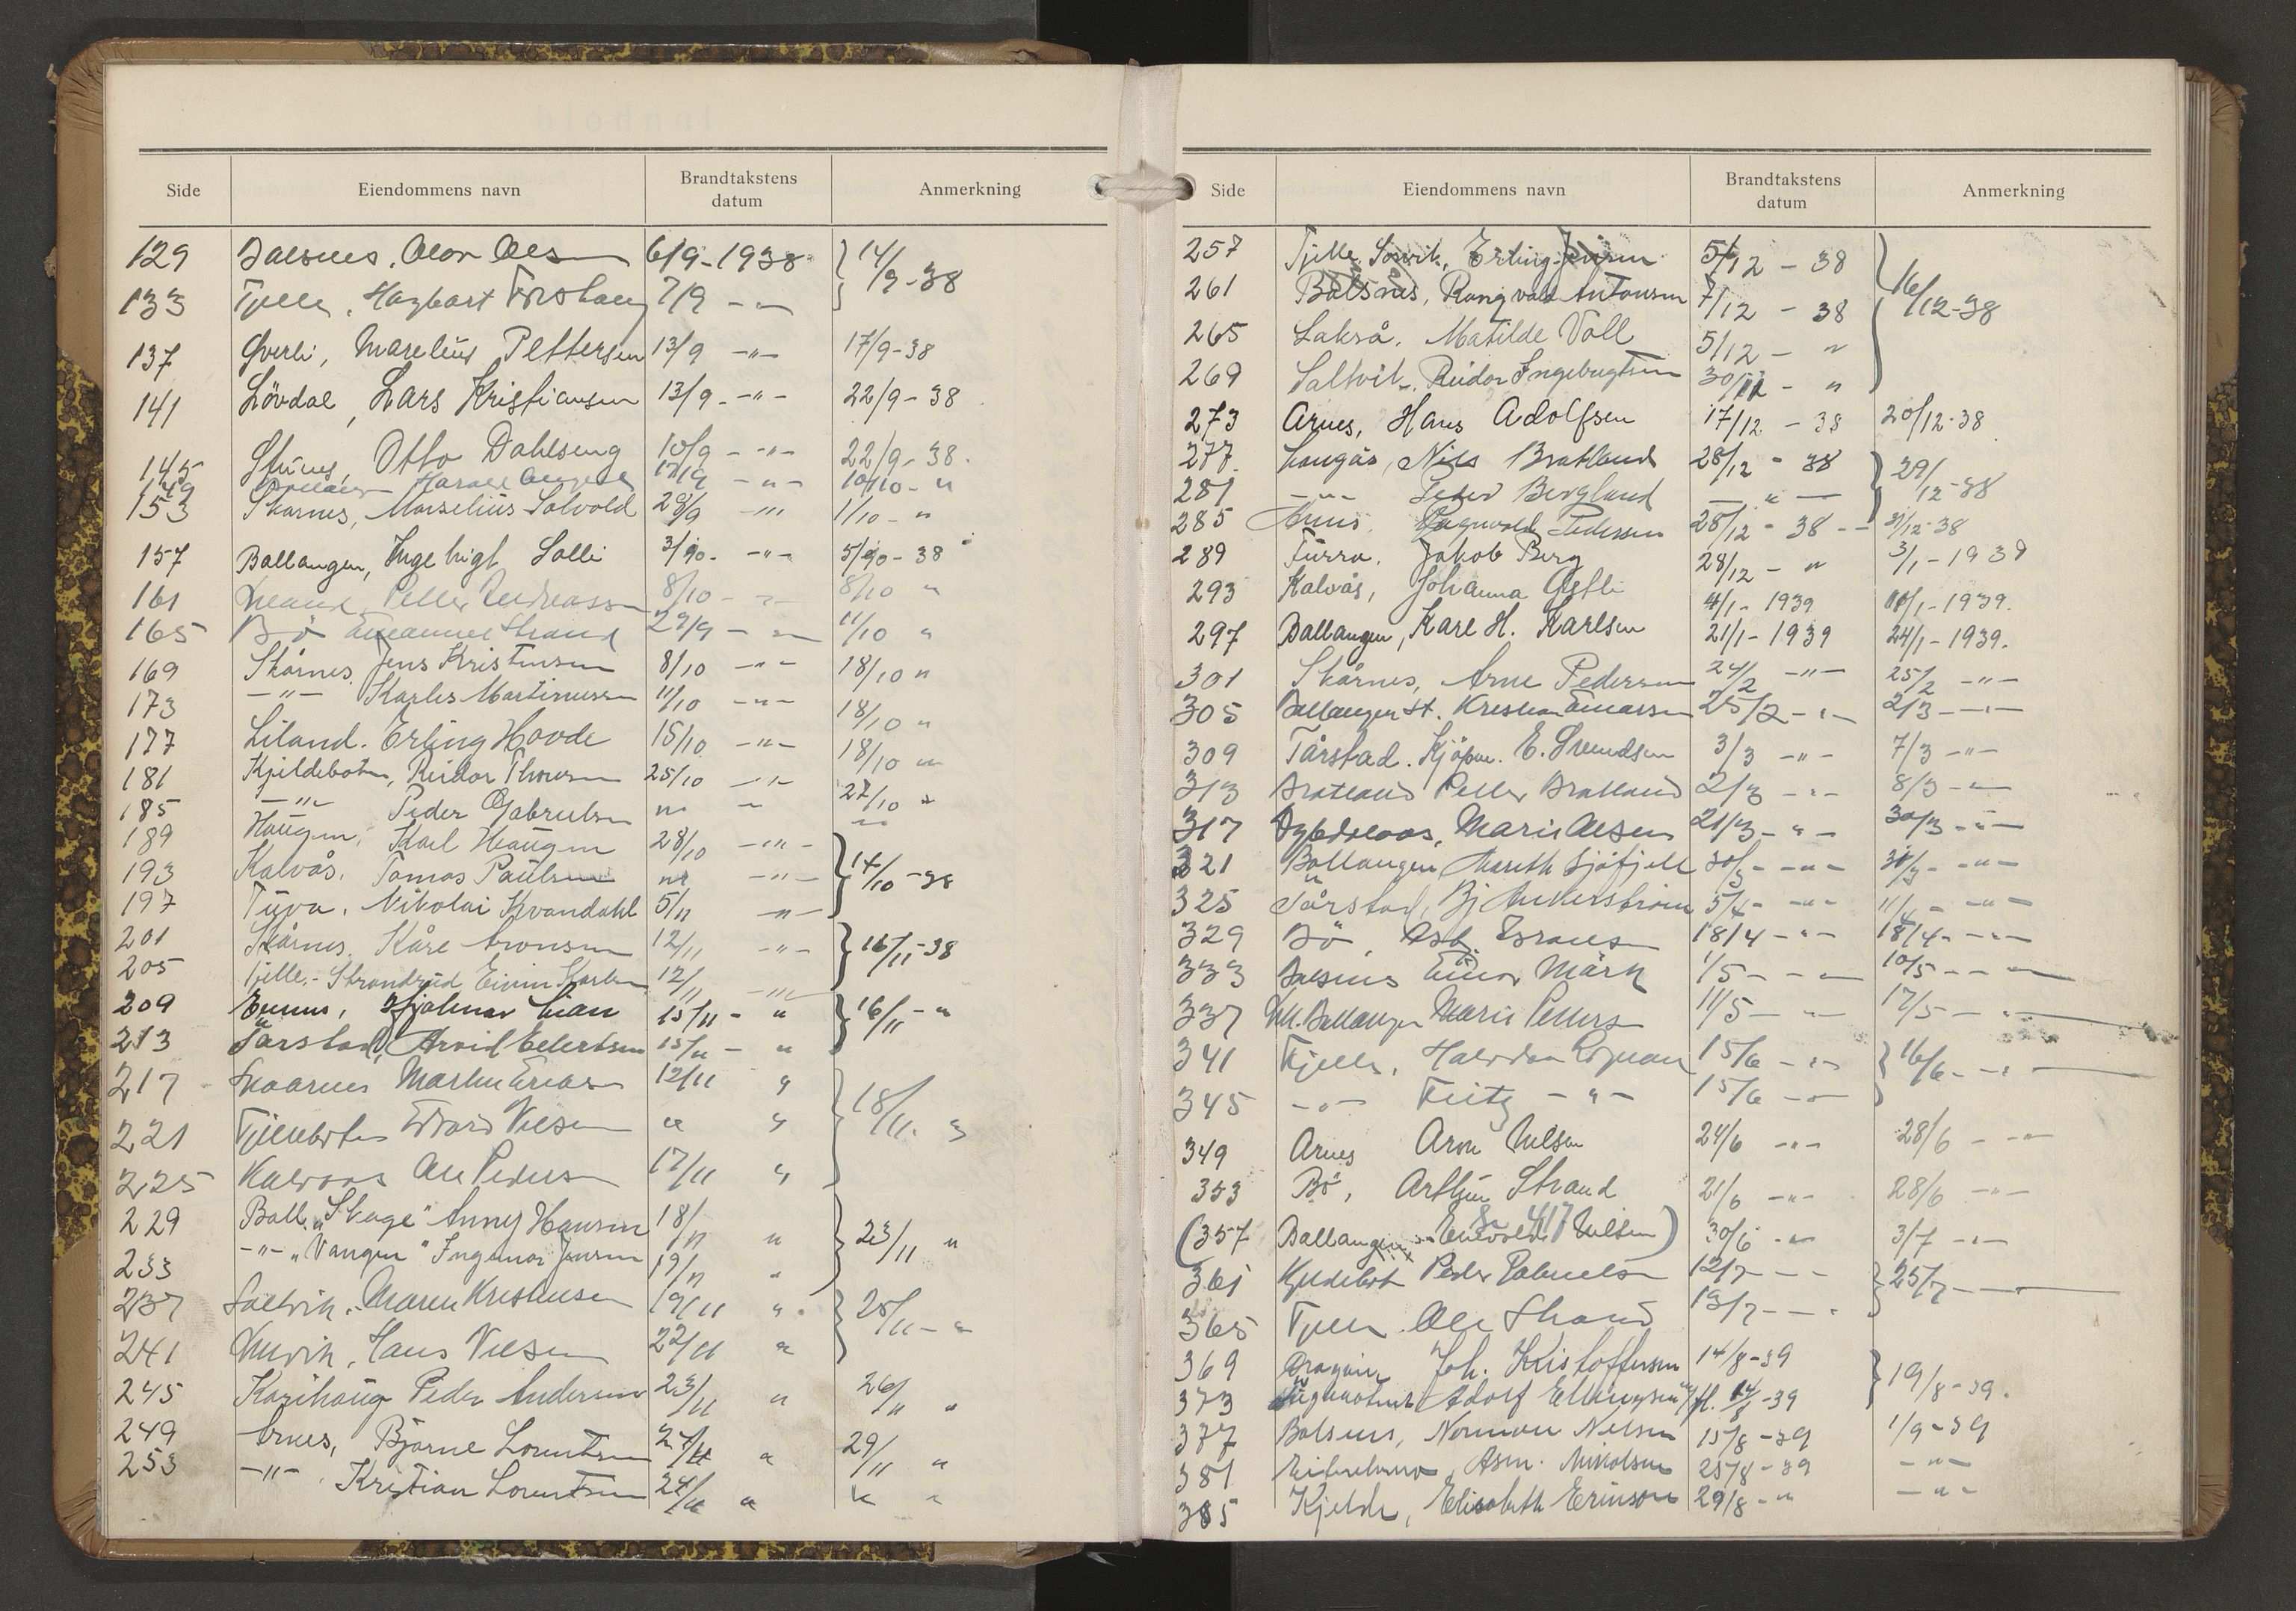 Side Eiendommens navn Brandtakstens datum Anmerkning
129 6/9-1938 } 14/9-38
133 Hagbart 7/9 -"-
137 Marelius Pettersen 13/9 -"- 17/9-38
141 Lövdal, Lars Kristiansen 13/9 -"- 22/9-38
145 Otto Dahlseng 10/9 -"- 22/9-38.
149 Harald 17/9 -"- 10/10- "
153 Skarnes, Marselius Solvold 28/9 -"- 1/10- "
157 Ballangen, Ingebrigt Solli 3/10. -"- 5/10-38
161 Petter Andreassen 8/10 - " - 8/10 "
165 Bö Emanuel Strand 29/9 - " - 11/10 "
169 Skårnes, Jens Kristensen 8/10 -"- 18/10 "
173 -"- Karles Martinussen 11/10 -"- 18/10 "
177 Liland. Erling Hovde 15/10 -"- 18/10 "
181 Kjeldebotn, Reidar Thomsen 25/10 -"- 27/10 "
185 -"- Peder Gabrielsen " - "
189 Haugen, Karl Haugen 28/10 -"- } 14/10-38
193 Kalvås, Tomas Paulsen " -"-
197 Nikolai Kvandahl 5/11 -"-
201 Skårnes, Kåre Aronsen 12/11 -"- } 16/11-38
205 Fjelle.- Strandrud 12/11 -"-
209 Hjalmar Lian 15/11 - " } 16/11 - "
213 Tårstad, Arvid Edertsen 15/11 - "
217 Martin 12/11 " } 18/11. "
221 Edvard Nilsen " "
225 Kalvaas Ole Peders 17/11 "
229 Ball. "Skage" Anny Hansen 18/11 " } 23/11 "
233 -"- "Vangen" Ingemar Jensen 19/11 "
237 Maren Kristensen 19/11 " } 25/11 - "
241 Hans Nilsen 22/11 "
245 Karihaug Peder Andersen 23/11 " 26/11 "
249 Arnes, Bjarne Lorentsen 24/11 " 29/11 "
253 -"- Kristian Lorentsen 24/11 " " "
Side Eiendommens navn Brandtakstens datum Anmerkning
257 Fjelle, Sorvik, Erling Jensen 5/12 - 38 } 16/12-38
261 Balsnes, Rangvald Antonsen 7/12 - 38
265 Lakså. Matilde Voll 5/12 - "
269 Saltvik, Reidar Ingebrigtsen 30/11 - "
273 Arnes, Hans Adolfsen 17/12 - 38 20/12-38
277. Langås, Nils Bratland 28/12 - 38 } 29/12-38
281 -"- Peder Bergland - " -
285 Arnes, Ragnvald Pedersen 28/12 - 38 - 31/12-38
289 Jakob Berg 28/12 - " 3/1 - 1939
293 Kalvås, Johanna 4/1 - 1939 11/1 - 1939.
297 Ballangen, Karl H. Karlsen 21/1 - 1939 24/1 - 1939.
301 Skårnes, Arne Pedersen 24/2 -"- 25/2 -"-
305 Ballangen st. Kristian Einarsen 25/2 -"- 2/3 -"-
309 Tårstad. Kjøpm. E. Svendsen 3/3 -"- 7/3 -"-
313 Bratland Petter Bratland 2/3 -"- 8/3 -"-
317 Marie Olsen 21/3 - " - 30/3 -"-
321 Ballangen Marith Sjöfjell 30/3 - " - 31/3 - " -
325 Tårstad, Bj Ankerstrøm 5/4 - " - 11/4 - " -
329 Bö, 18/4 - " - 18/4 - " -
333 Einar Mårk 1/5 - " - 10/5 - " -
337 Ballangen Marie Peders 11/5 - " - 17/5 - " -
341 Fjelle, Halvdan 15/6 - " - } 16/6 - " -
345 -"- Fritz - " - 15/6 - " -
349 Arnes Arne Nilsen 24/6 -"- 28/6 -"-
353 Bö, Arthur Strand 21/6 -"- 28/6 -"-
Se 417
(357 Ballangen Nilsen) 30/6 -"- 3/7 -"-
361 Kjeldebot Peder Gabrielsen 12/7 -"- } 25/7 -
365 Fjelle Ole Strand 13/7 -"-
369 Joh. Kristoffersen 14/8-39 } 19/8-39.
373 Adolf Ellingsen 14/8-39
377 Balsnes, Norman Nilsen 15/8-39 1/9-39
381 Asm. Nikolsen 25/8-39 -"-
385 Kjelde, Elisabeth Erikson 29/8-" -"-